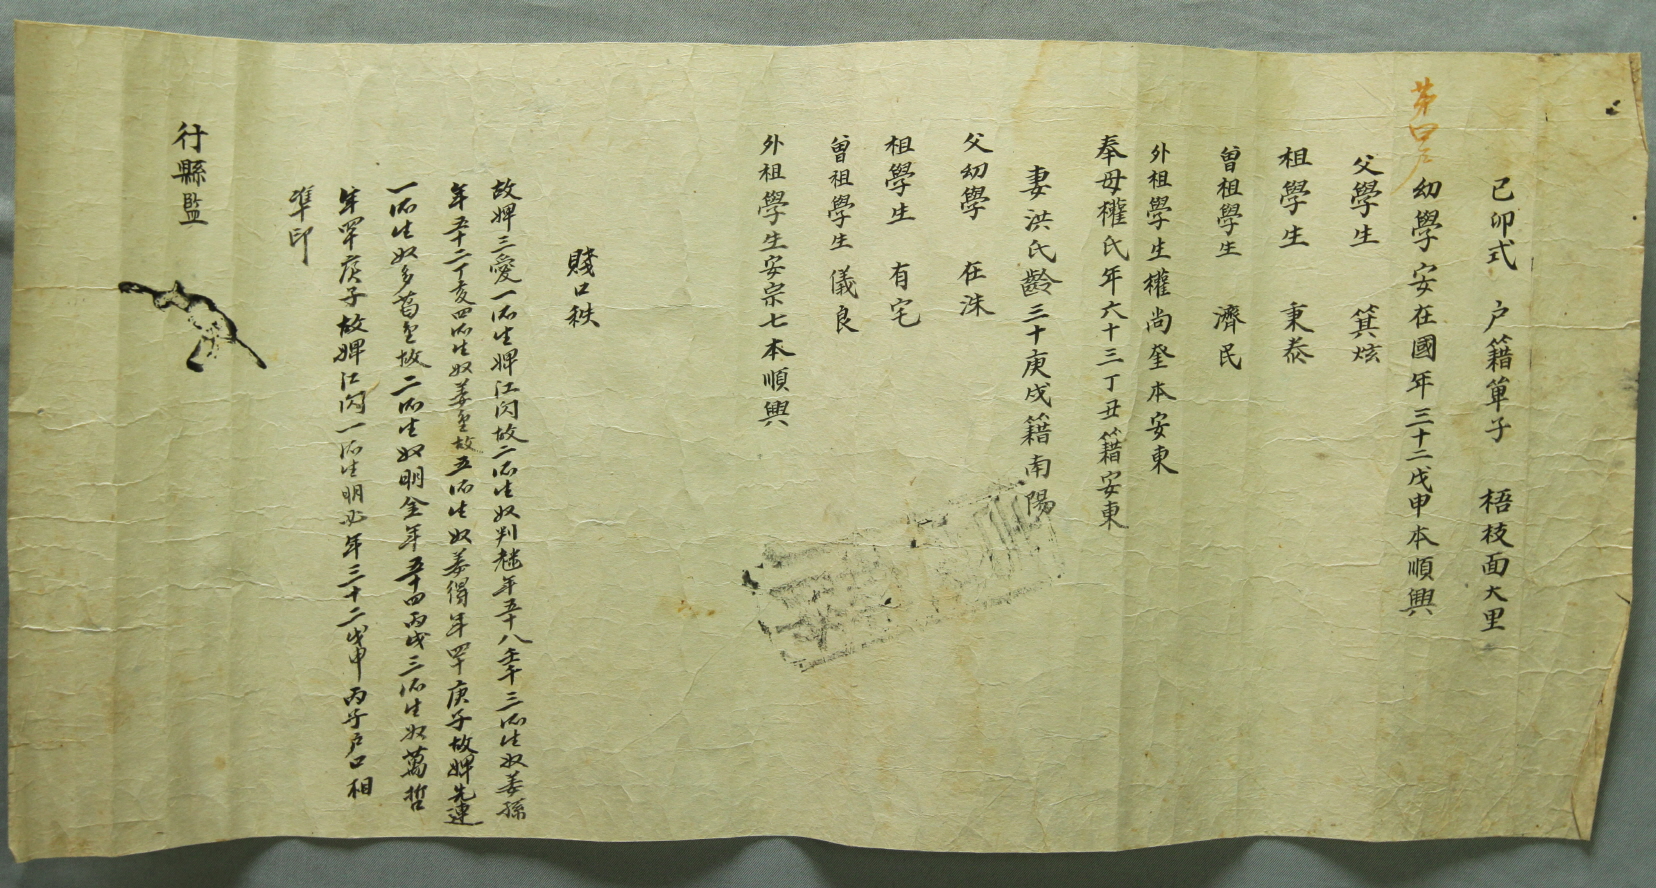 己卯式 户籍單子 梧枝面大里
第口户
幼學安在國年三十二戊申本順興
父學生 箕炫
祖學生 秉泰
曾祖學生 濟民
外祖學生權尚奎本安東
奉母權氏年六十三丁丑籍安東
妻洪氏齡三十庚戌籍南陽
父幼學 在洙
祖學生 有宅
曾祖學生 儀良
外祖學生安宗七本順興
賤口秩
故婢三愛一所生婢江閃故二所生奴判 年五十八壬午三所生奴姜孫
年五十二丁亥四所生奴姜金故五所生奴姜得年四十庚子故婢先連
一所生奴多勿金故二所生奴明金年五十四丙戌三所生奴萬哲
年四十庚子故婢江閃一所生明必年三十二戊申丙子户口相
準印
行縣監